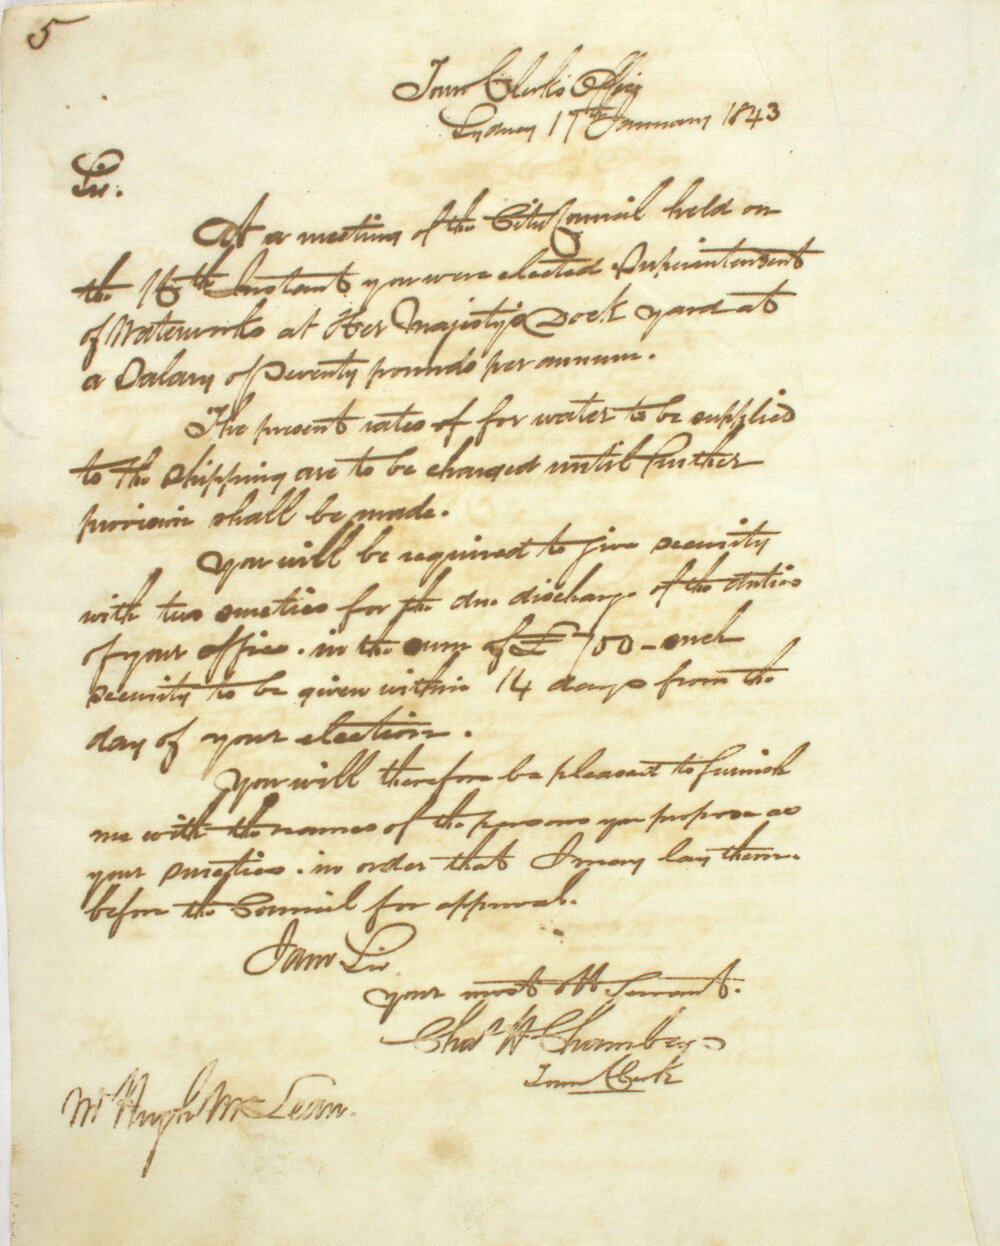 5
Town Clerk's Office
Sydney 17th January 1843
Sir.
At a meeting of the City Council held on
the 16th Instant you were elected Superintendent
of Waterworks at Her Majesty's Dock yard at
a Salary of Seventy pounds per annum.
The present rates of for water to be supplied
to the Shipping are to be charged until further
provision shall be made.
You will be required to give security
with two sureties for the due discharge of the duties
of your office. in the sum of £ 100 - such
security to be given within 14 days from the
day of your election.
You will therefore be pleased to furnish
me with the names of the persons you propose as
your sureties. in order that I may lay them.
before the Council for approval.
I am Sir
your most Obt Servant.
Chas H Chambers
Town Clerk
Mr Hugh Mc Lean.